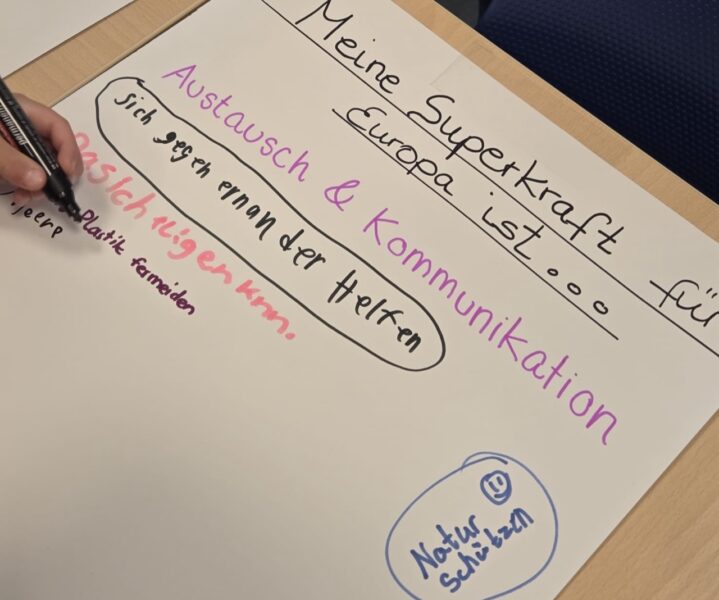 Meine Superkraft für
Europa ist...
Austausch & Kommunikation
sich gegen einander Helfen
Plastik fermeiden
Natur
schützen